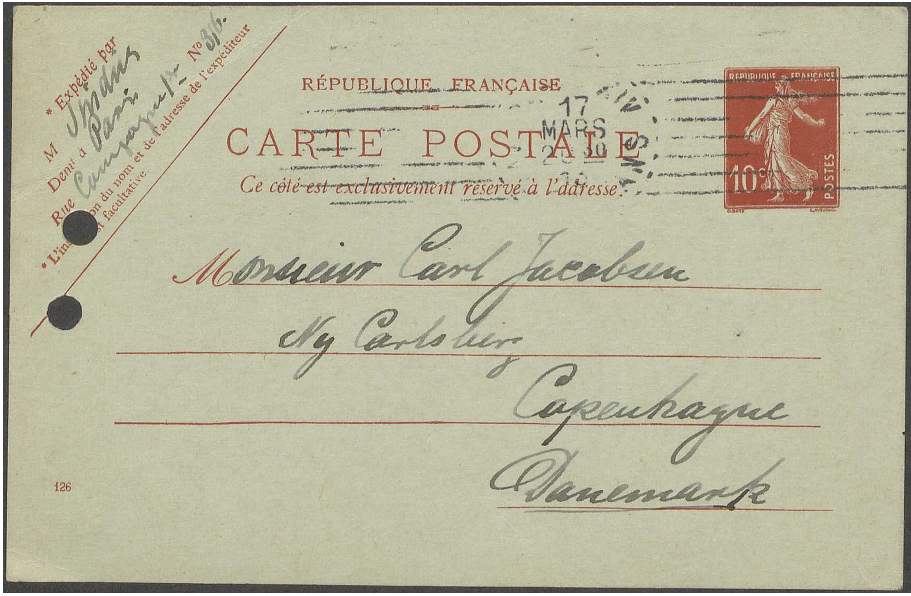 * Expédié par
M
Demt à Paris
Rue Campagne 1re No 3/6.
* L'in on du nom et de l'adresse de l'expéditeur
st facultative.
RÉPUBLIQUE FRANÇAISE
CARTE POSTALE
Ce côté est exclusivement réservé à l'adresse.
17
MARS
RÉPUBLIQUE FRANÇAISE
10c
POSTES
Monsieur Carl Jacobsen
Ny Carlsberg
Copenhague
Danemark
126